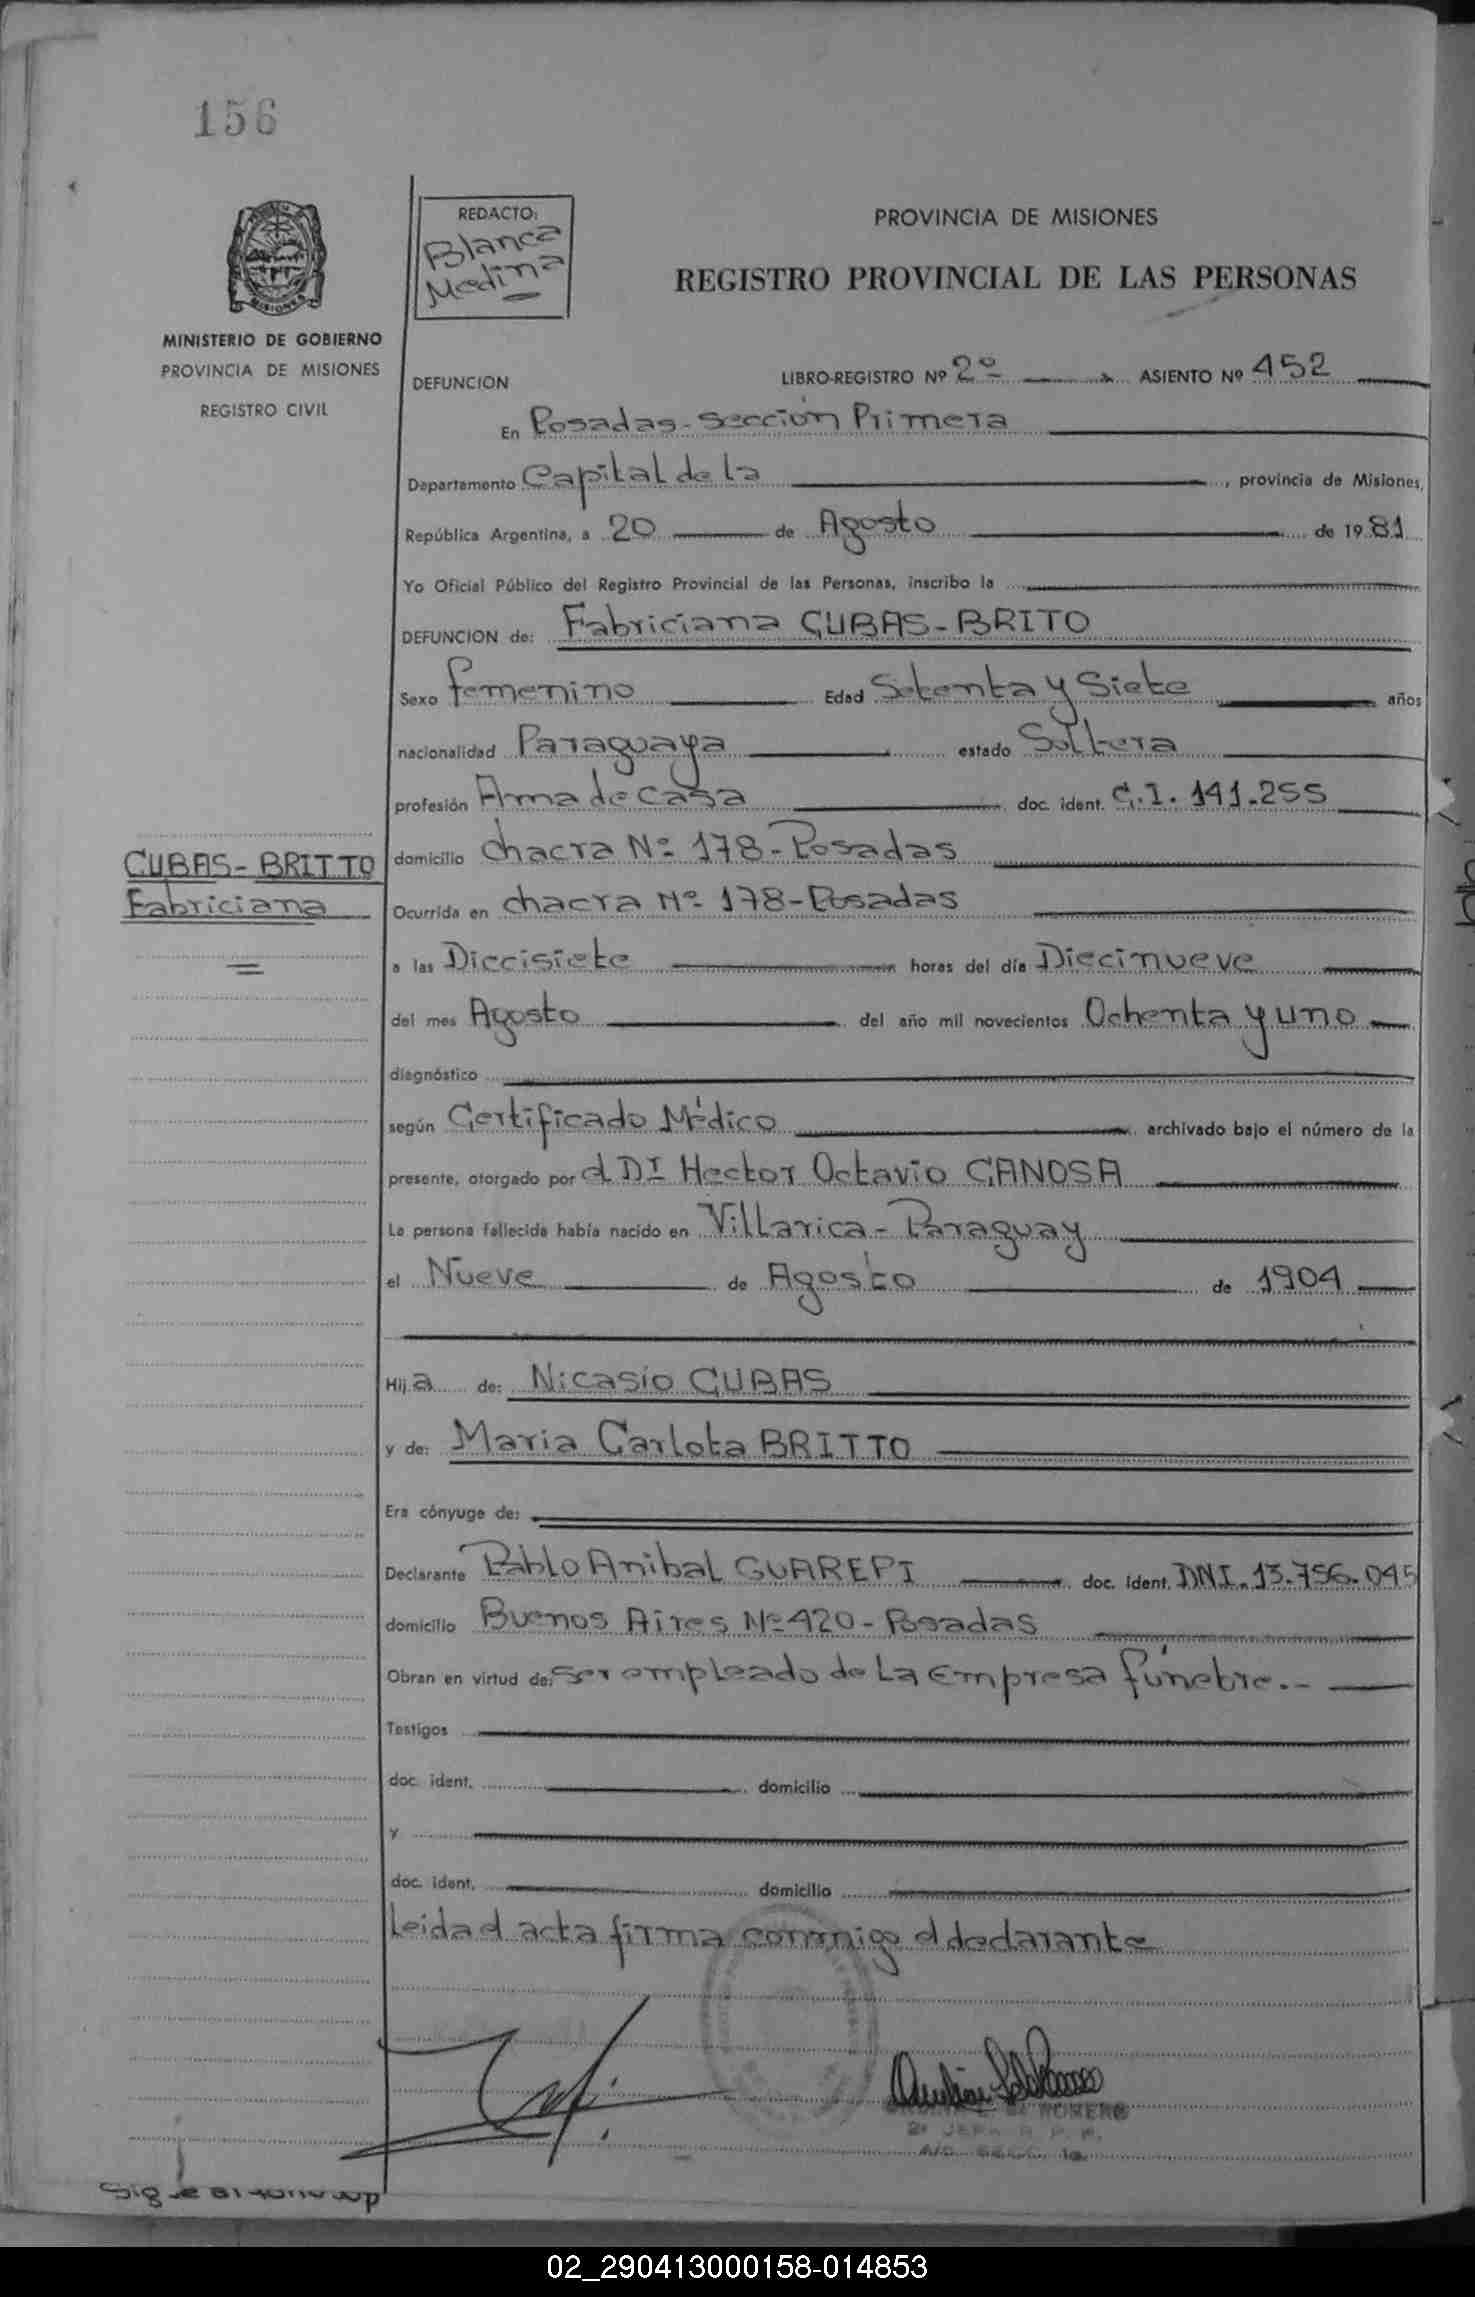 156
REDACTO:
Blanca
Medina
PROVINCIA DE MISIONES
REGISTRO PROVINCIAL DE LAS PERSONAS
MISIONES
MINISTERIO DE GOBIERNO
PROVINCIA DE MISIONES
REGISTRO CIVIL
DEFUNCION LIBRO-REGISTRO Nº 2º ASIENTO Nº 452
En Posadas-Sección Primera
Departamento Capital de la, provincia de Misiones,
República Argentina, a 20 de Agosto de 1981
Yo Oficial Público del Registro Provincial de las Personas, inscribo la
DEFUNCION de: Fabriciana CUBAS-BRITO
Sexo femenino Edad Setenta y Siete años
nacionalidad Paraguaya estado Soltera
profesión Ama de casa doc. ident. C.I. 141.255
CUBAS-BRITTO
Fabriciana
domicilio chacra Nº 178-Posadas
Ocurrida en chacra Nº 178-Posadas
a las Diecisiete horas del día Diecinueve
del mes Agosto del año mil novecientos Ochenta y uno
diagnóstico
según Certificado Médico archivado bajo el número de la
presente, otorgado por el Dr Hector Octavio CANOSA
La persona fallecida había nacido en Villarica-Paraguay
el Nueve de Agosto de 1904
Hija de: Nicasio CUBAS
y de: Maria Carlota BRITTO
Era cónyuge de:
Declarante Pablo Anibal GUAREPI doc. ident. DNI. 13.756.045
domicilio Buenos Aires Nº 420-Posadas
Obran en virtud de: ser empleado de la Empresa fúnebre.-
Testigos
doc. ident. domicilio
y
doc. ident. domicilio
Leida el acta firma conmigo el declarante
ROMERO
2º JEFA R. P. P.
A/C SECC. 1a.
02_290413000158-014853